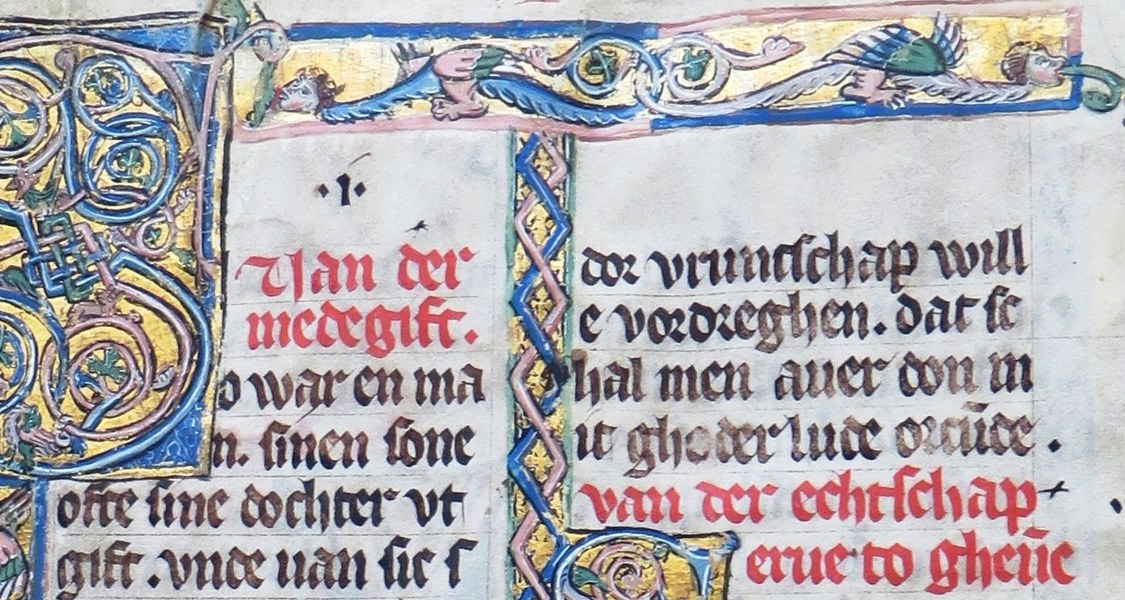 ·I·
Uan der
medegift.
o war en ma
n. sinen sone
ofte sine dochter vt
gift. vnde uan sic s
dor vruntschap will
e vordreghen. dat sc
hal men auer don m
it ghoder lude orcūde.
van der echtschap
erue to gheūe